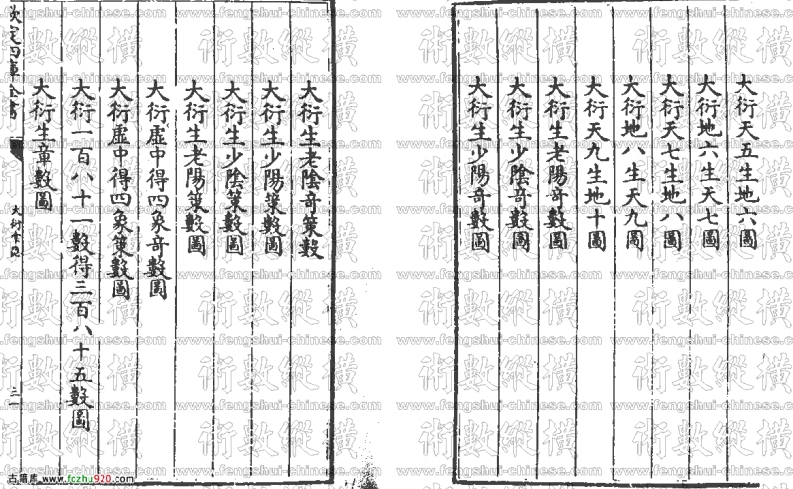 大衍天五生地六圖
大衍地六生天七圖
大衍天七生地八圖
大衍地八生天九圖
大衍天九生地十圖
大衍生老陽奇數圖
大衍生少陰奇數圖
大衍生少陽奇數圖
大衍生老陰奇策數
大衍生少陽策數圖
大衍生少陰策數圖
大衍生老陽策數圖
大衍虛中得四象奇數圖
大衍虛中得四象策數圖
大衍一百八十一數得三百八十五數圖
大衍生章數圖
欽定四庫全書
大衍索隱
橫縱數術
www.fengshui-chinese.com
古籍库 www.fczhu920.com